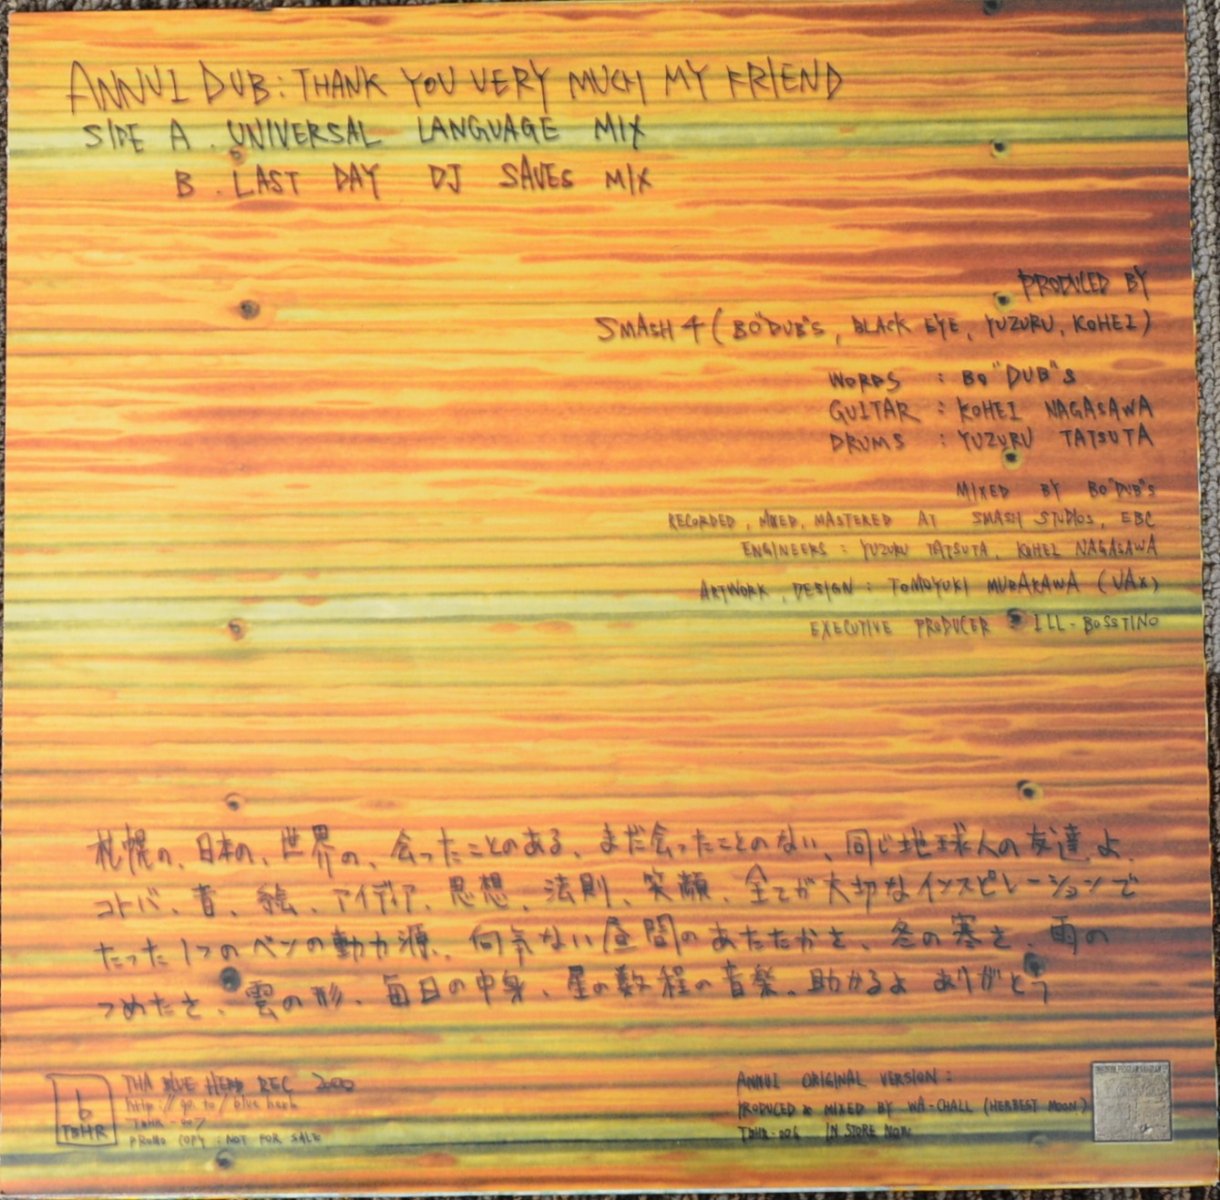 ANNUI DUB: THANK YOU VERY MUCH MY FRIEND
SIDE A. UNIVERSAL LANGUAGE MIX
B. LAST DAY DJ SAVES MIX
PRODUCED BY
SMASH 4 (BO"DUB"S, BLACK EYE, YUZURU, KOHEI)
WORDS : BO"DUB"S
GUITAR : KOHEI NAGASAWA
DRUMS : YUZURU TATSUTA
MIXED BY BO"DUB"S
RECORDED, MIXED, MASTERED AT SMASH STUDIOS, EBC
ENGINEERS : YUZURU TATSUTA, KOHEI NAGASAWA
ARTWORK, DESIGN : TOMOYUKI MURAKAWA (UAX)
EXECUTIVE PRODUCER ILL-BOSSTINO
札幌の、日本の、世界の、会ったことのある、まだ会ったことのない、同じ地球人の友達よ、
コトバ、音、絵、アイディア、思想、法則、笑顔、全てが大切なインスピレーションで
たった1つのペンの動力源、何気ない昼間のあたたかさ、冬の寒さ、雨の
つめたさ、雲の形、毎日の中身、星の数程の音楽、助かるよ ありがとう
b
TBHR
THA BLUE HERB REC 2000
http://go.to/blueherb
TBHR-007
PROMO COPY : NOT FOR SALE
ANNUI ORIGINAL VERSION :
PRODUCED & MIXED BY WA-CHALL (HERBEST MOON)
TBHR-006 IN STORE NOW